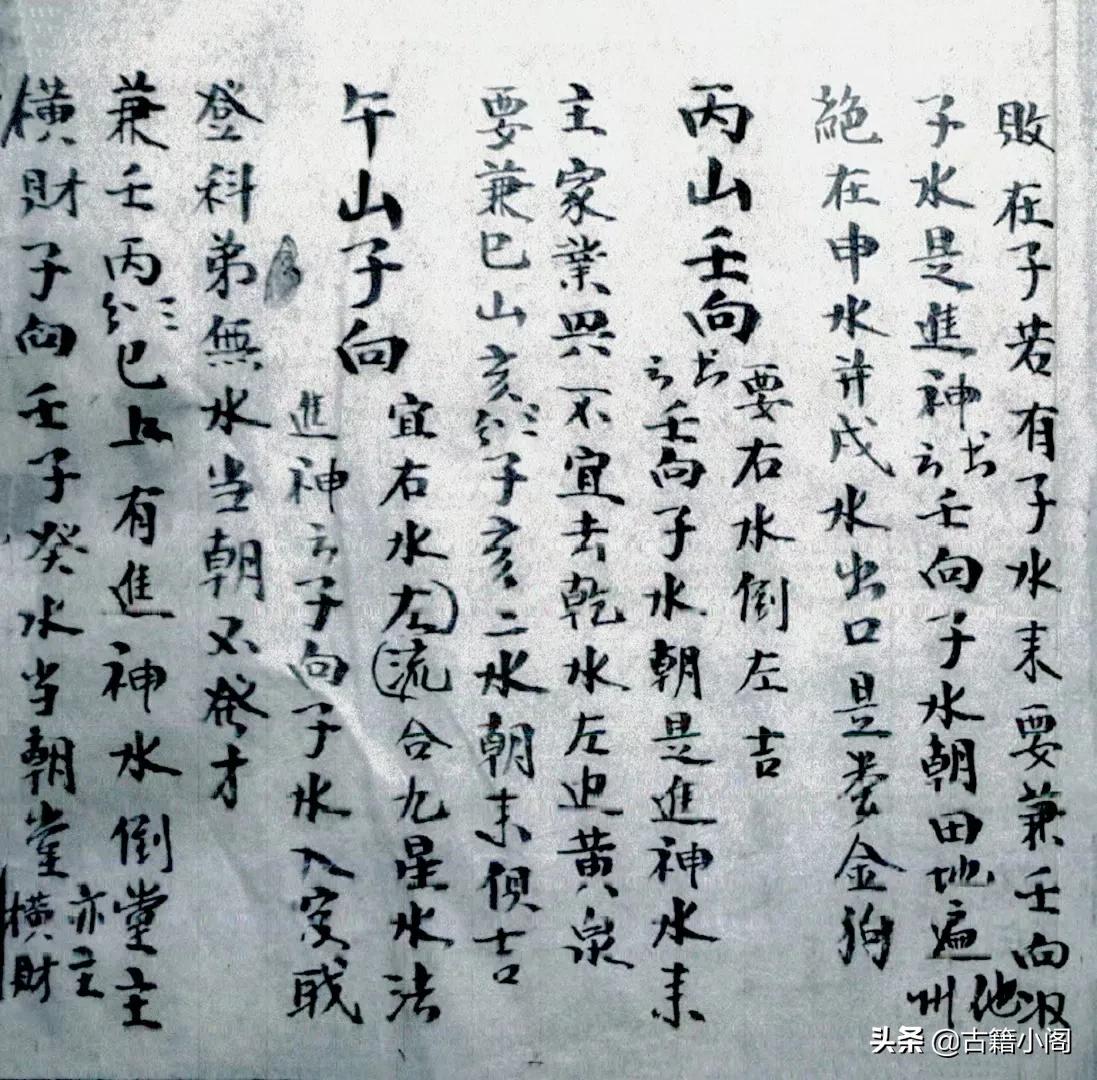 敗在子若有子水来要兼壬向收他
子水是進神书云壬向子水朝田地遍州
絕在申水并戍水出口是娄金狗
丙山壬向
要右水倒左吉
书云壬向子水朝是進神水来
主家業兴不宜去乾水左边黄泉
要兼巳山亥三分子亥二水朝来俱吉
午山子向
宜右水左流合九星水法
進神云子向子水入家或
登科弟無水当朝不發才
兼壬丙三分巳上有進神水倒堂主
橫財子向壬子癸水当朝堂亦主橫財
头条 @古籍小阁